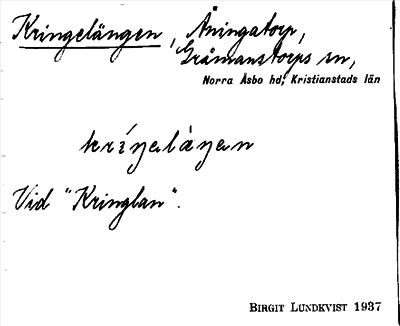 Kringelängen, Åningatorp,
Gråmanstorps sn,
Norra Åsbo hd, Kristianstads län
kríŋəlàŋən
Vid "Kringlan".
BIRGIT LUNDKVIST 1937